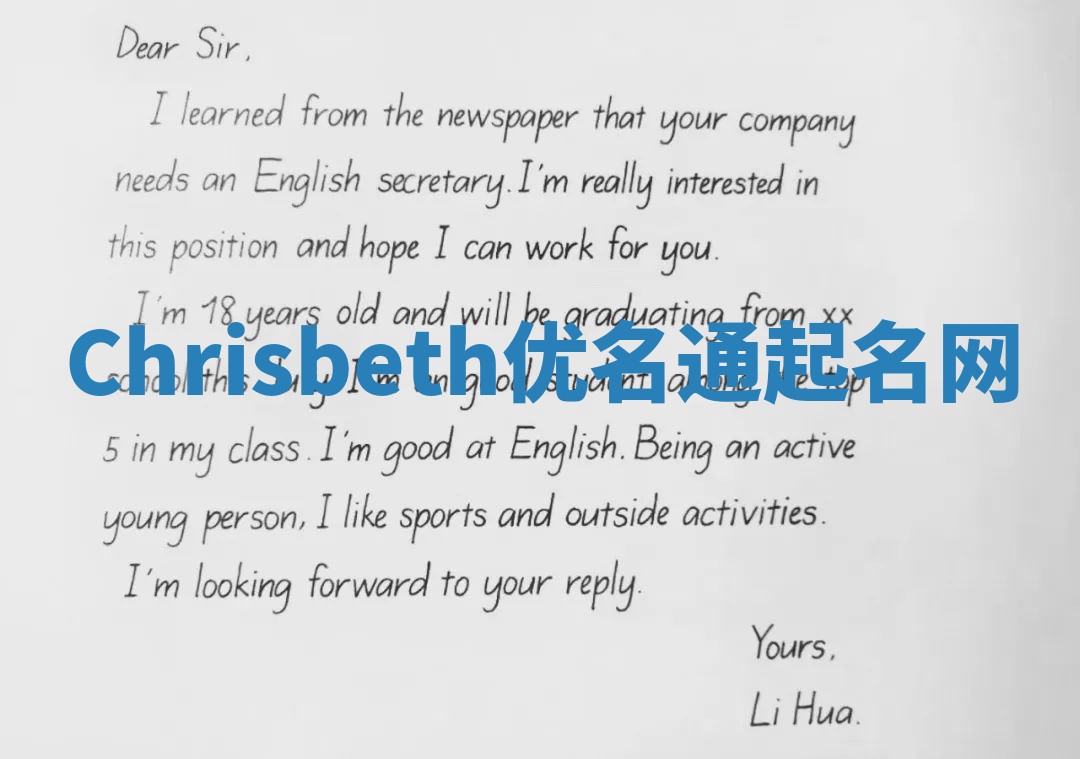 Dear Sir,
I learned from the newspaper that your company
needs an English secretary. I'm really interested in
this position and hope I can work for you.
I'm 18 years old and will be graduating from xx
Chrisbeth优名通起名网
school this July. I'm an good student among the top
5 in my class. I'm good at English. Being an active
young person, I like sports and outside activities.
I'm looking forward to your reply.
Yours,
Li Hua.